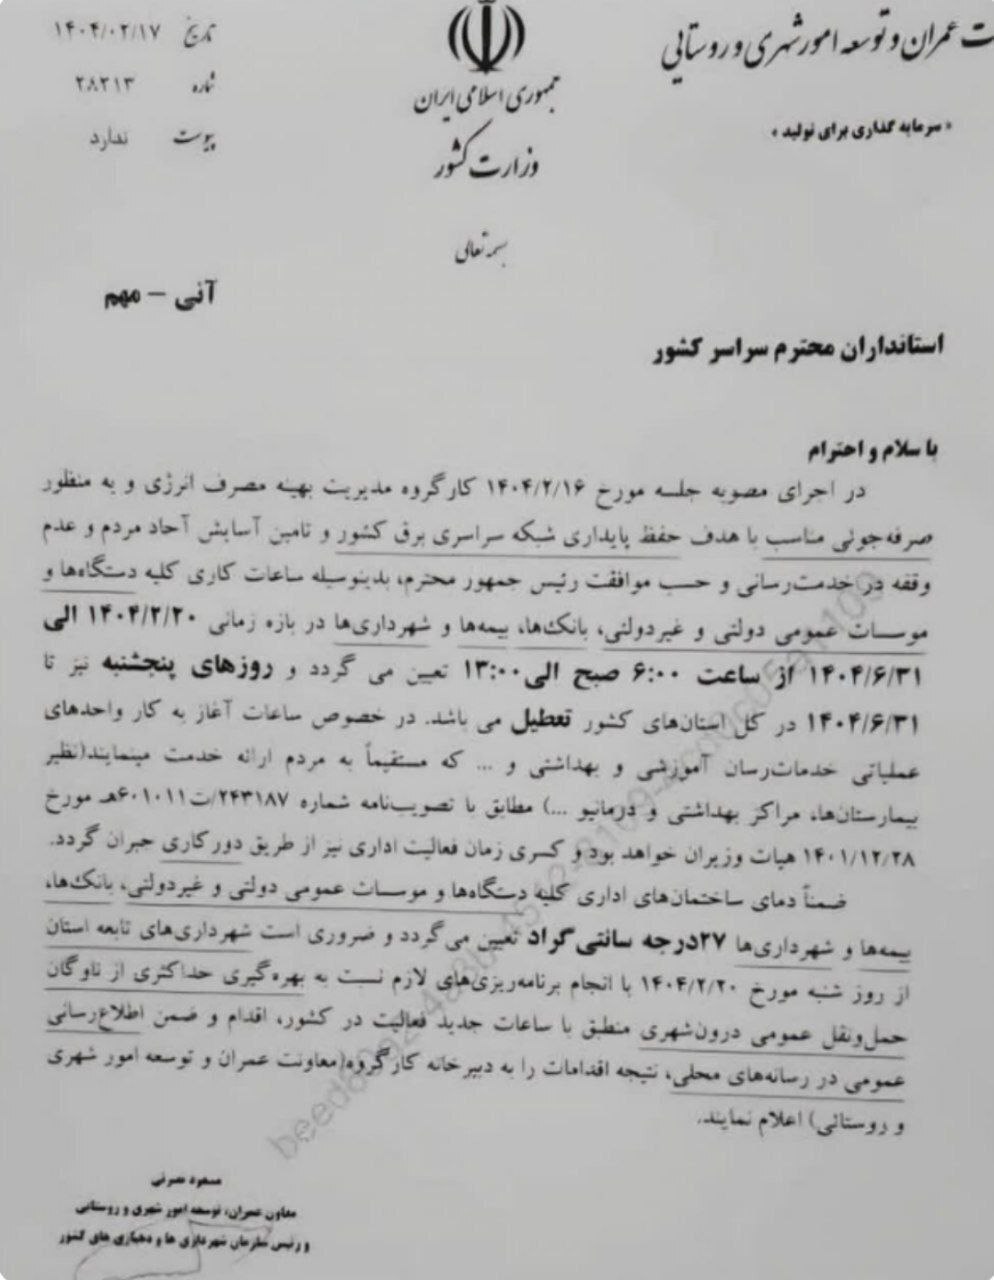 ت عمران و توسعه امور شهری و روستایی
« سرمایه گذاری برای تولید »
جمهوری اسلامی ایران
وزارت کشور
تاریخ ۱۴۰۴/۰۲/۱۷
شماره ۲۸۲۱۳
پیوست ندارد
بسمه تعالی
آنی - مهم
استانداران محترم سراسر کشور
با سلام و احترام
در اجرای مصوبه جلسه مورخ ۱۴۰۴/۲/۱۶ کارگروه مدیریت بهینه مصرف انرژی و به منظور
صرفه‌جوئی مناسب با هدف حفظ پایداری شبکه سراسری برق کشور و تامین آسایش آحاد مردم و عدم
وقفه در خدمت‌رسانی و حسب موافقت رئیس جمهور محترم، بدینوسیله ساعات کاری کلیه دستگاه‌ها و
موسسات عمومی دولتی و غیردولتی، بانک‌ها، بیمه‌ها و شهرداری‌ها در بازه زمانی ۱۴۰۴/۲/۲۰ الی
۱۴۰۴/۶/۳۱ از ساعت ۶:۰۰ صبح الی ۱۳:۰۰ تعیین می گردد و روزهای پنجشنبه نیز تا
۱۴۰۴/۶/۳۱ در کل استان‌های کشور تعطیل می باشد. در خصوص ساعات آغاز به کار واحدهای
عملیاتی خدمات‌رسان آموزشی و بهداشتی و ... که مستقیماً به مردم ارائه خدمت مینمایند(نظیر
بیمارستان‌ها، مراکز بهداشتی و درمانیو ...) مطابق با تصویب‌نامه شماره ۲۴۳۱۸۷/ت۶۰۱۰۱۱هـ مورخ
۱۴۰۱/۱۲/۲۸ هیات وزیران خواهد بود و کسری زمان فعالیت اداری نیز از طریق دورکاری جبران گردد.
ضمناً دمای ساختمان‌های اداری کلیه دستگاه‌ها و موسسات عمومی دولتی و غیردولتی، بانک‌ها،
بیمه‌ها و شهرداری‌ها ۲۷درجه سانتی‌گراد تعیین می‌گردد و ضروری است شهرداری‌های تابعه استان
از روز شنبه مورخ ۱۴۰۴/۲/۲۰ با انجام برنامه‌ریزی‌های لازم نسبت به بهره‌گیری حداکثری از ناوگان
حمل‌ونقل عمومی درون‌شهری منطبق با ساعات جدید فعالیت در کشور، اقدام و ضمن اطلاع‌رسانی
عمومی در رسانه‌های محلی، نتیجه اقدامات را به دبیرخانه کارگروه(معاونت عمران و توسعه امور شهری
و روستائی) اعلام نمایند.
مسعود نصرتی
معاون عمران، توسعه امور شهری و روستائی
و رئیس سازمان شهرداری ها و دهیاری های کشور